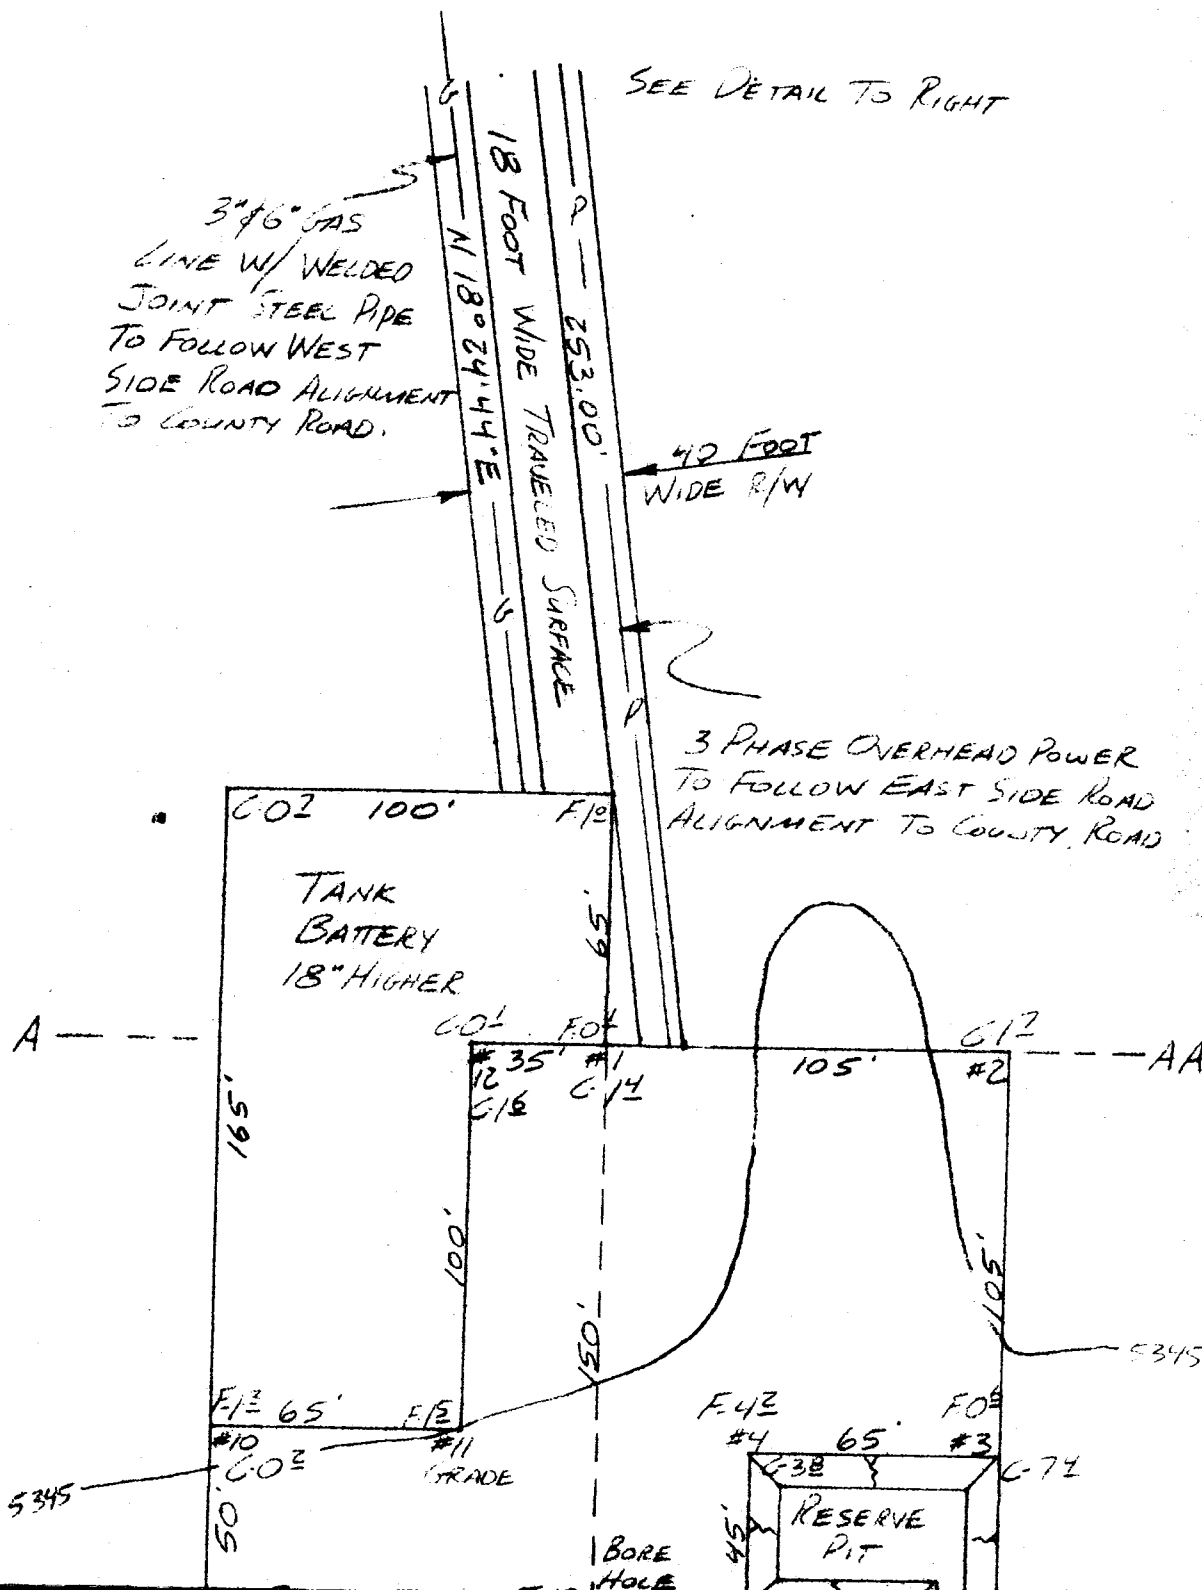 SEE DETAIL TO RIGHT
G
3" & 6" GAS
LINE W/ WELDED
JOINT STEEL PIPE
TO FOLLOW WEST
SIDE ROAD ALIGNMENT
TO COUNTY ROAD.
N 18° 24' 44" E
18 FOOT WIDE TRAVELED SURFACE
P
253.00'
40 FOOT
WIDE R/W
G
P
3 PHASE OVERHEAD POWER
TO FOLLOW EAST SIDE ROAD
ALIGNMENT TO COUNTY ROAD
100'
TANK
BATTERY
18" HIGHER
65'
A
AA
35'
#1
105'
#2
#12
165'
100'
150'
105'
5345
65'
#10
#11
GRADE
5345
50'
#4
65'
#3
45'
RESERVE
PIT
BORE
HOLE